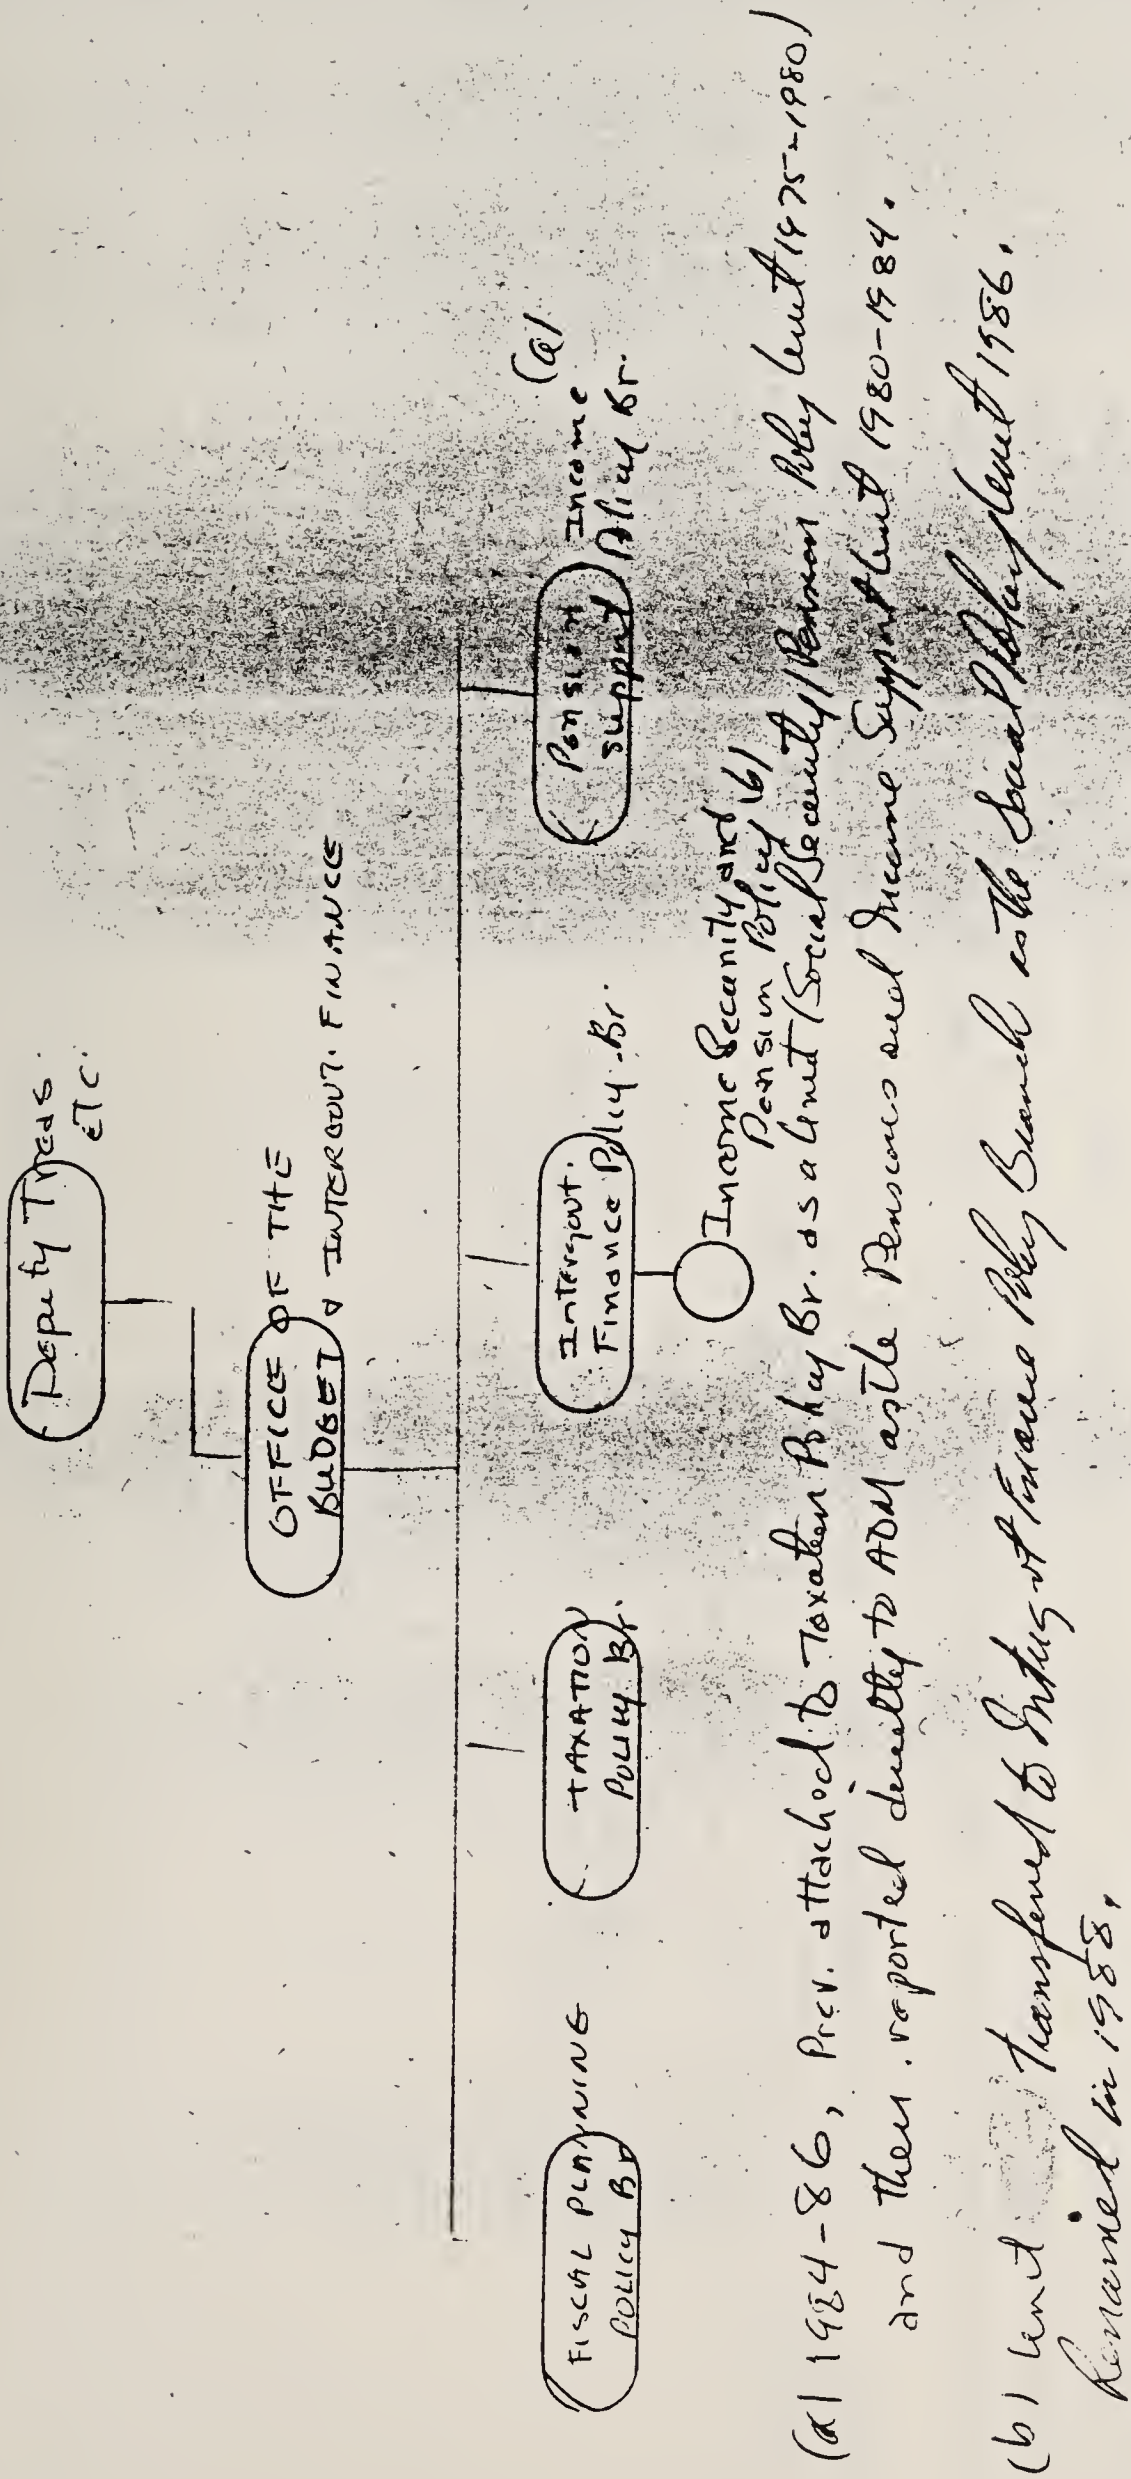 Deputy Treas.
ETC.
OFFICE OF THE
BUDGET & INTERGOVT. FINANCE
FISCAL PLANNING
POLICY Br
TAXATION
POLICY Br.
Intergovt.
Finance Policy Br.
Pension Income (a)
Support Policy Br.
Income Security and
Pension Policy (b)
(a) 1984-86, Prev. attached to Taxation Policy Br. as a Unit (Social Security/Pension Policy Unit 1975-1980)
and then reported directly to ADM as the Pensions and Income Support Unit 1980-1984.
(b) Unit transferred to Intergovt Finance Policy Branch as the Social Policy Unit 1986.
Renamed in 1988.